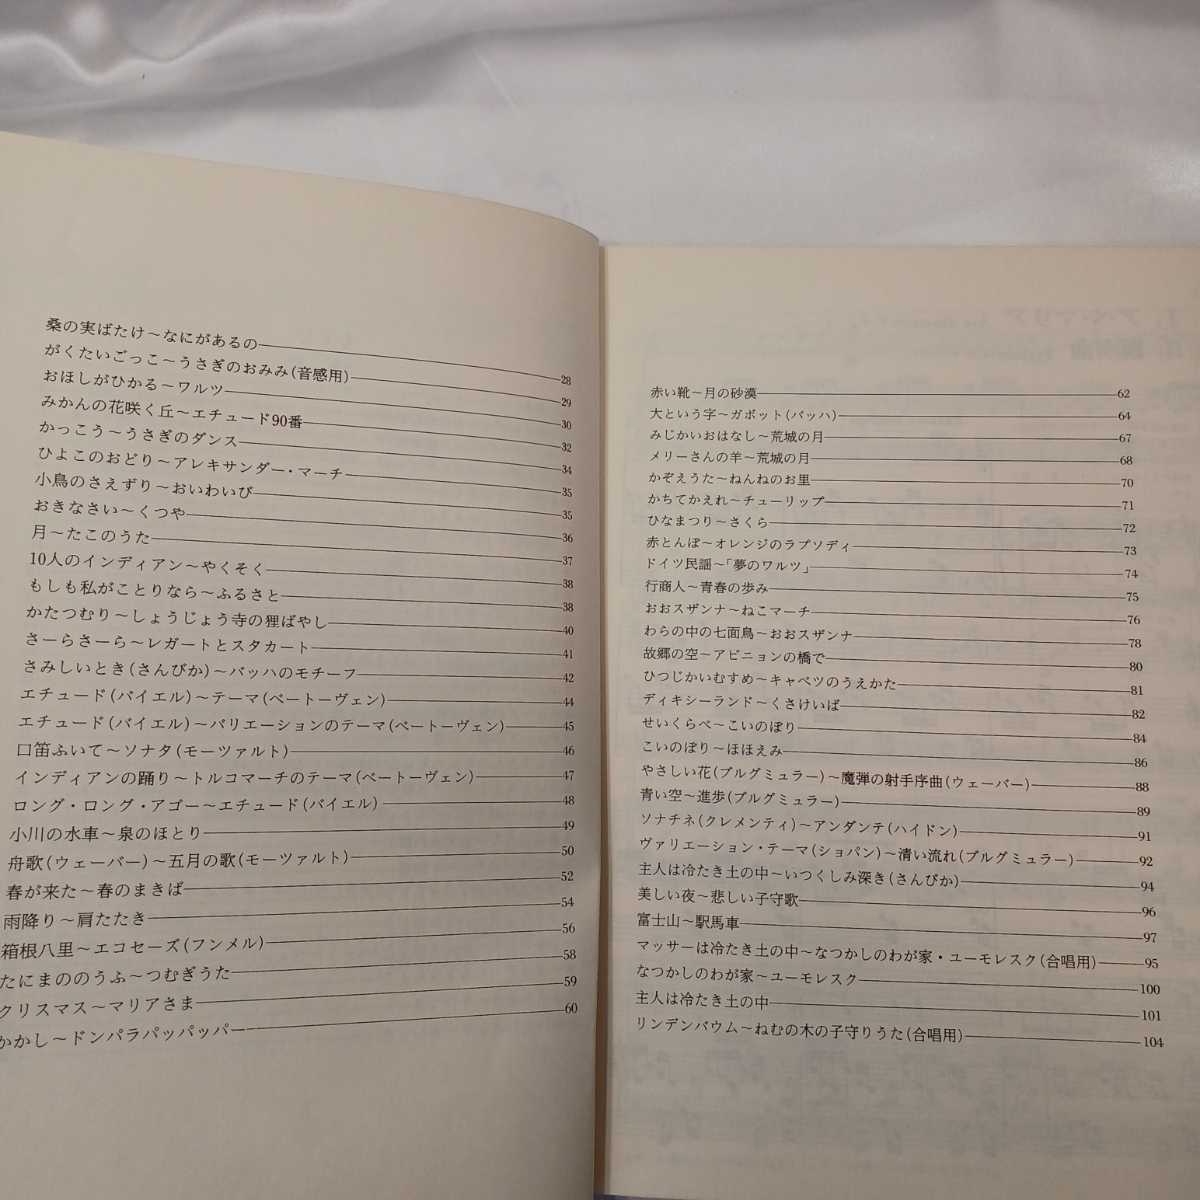 桑の実ばたけ～なにがあるの 28
がくたいごっこ～うさぎのおみみ(音感用) 29
おほしがひかる～ワルツ 30
みかんの花咲く丘～エチュード90番 32
かっこう～うさぎのダンス 34
ひよこのおどり～アレキサンダー・マーチ 35
小鳥のさえずり～おいわいび 35
おきなさい～くつや 36
月～たこのうた 37
10人のインディアン～やくそく 38
もしも私がことりなら～ふるさと 38
かたつむり～しょうじょう寺の狸ばやし 40
さーらさーら～レガートとスタカート 41
さみしいとき(さんびか)～バッハのモチーフ 42
エチュード(バイエル)～テーマ(ベートーヴェン) 44
エチュード(バイエル)～バリエーションのテーマ(ベートーヴェン) 45
口笛ふいて～ソナタ(モーツァルト) 46
インディアンの踊り～トルコマーチのテーマ(ベートーヴェン) 47
ロング・ロング・アゴー～エチュード(バイエル) 48
小川の水車～泉のほとり 49
舟歌(ウェーバー)～五月の歌(モーツァルト) 50
春が来た～春のまきば 52
雨降り～肩たたき 54
箱根八里～エコセーズ(フンメル) 56
たにまののうふ～つむぎうた 58
クリスマス～マリアさま 59
かかし～ドンパラパッパッパー 60
赤い靴～月の砂漠 62
大という字～ガボット(バッハ) 64
みじかいおはなし～荒城の月 67
メリーさんの羊～荒城の月 68
かぞえうた～ねんねのお里 70
かちてかえれ～チューリップ 71
ひなまつり～さくら 72
赤とんぼ～オレンジのラプソディ 73
ドイツ民謡～「夢のワルツ」 74
行商人～青春の歩み 75
おおスザンナ～ねこマーチ 76
わらの中の七面鳥～おおスザンナ 78
故郷の空～アビニョンの橋で 80
ひつじかいむすめ～キャベツのうえかた 81
ディキシーランド～くさけいば 82
せいくらべ～こいのぼり 84
こいのぼり～ほほえみ 86
やさしい花(ブルグミュラー)～魔弾の射手序曲(ウェーバー) 88
青い空～進歩(ブルグミュラー) 89
ソナチネ(クレメンティ)～アンダンテ(ハイドン) 91
ヴァリエーション・テーマ(ショパン)～清い流れ(ブルグミュラー) 92
主人は冷たき土の中～いつくしみ深き(さんびか) 94
美しい夜～悲しい子守歌 96
富士山～駅馬車 97
マッサーは冷たき土の中～なつかしのわが家・ユーモレスク(合唱用) 95
なつかしのわが家～ユーモレスク 100
主人は冷たき土の中 101
リンデンバウム～ねむの木の子守りうた(合唱用) 104